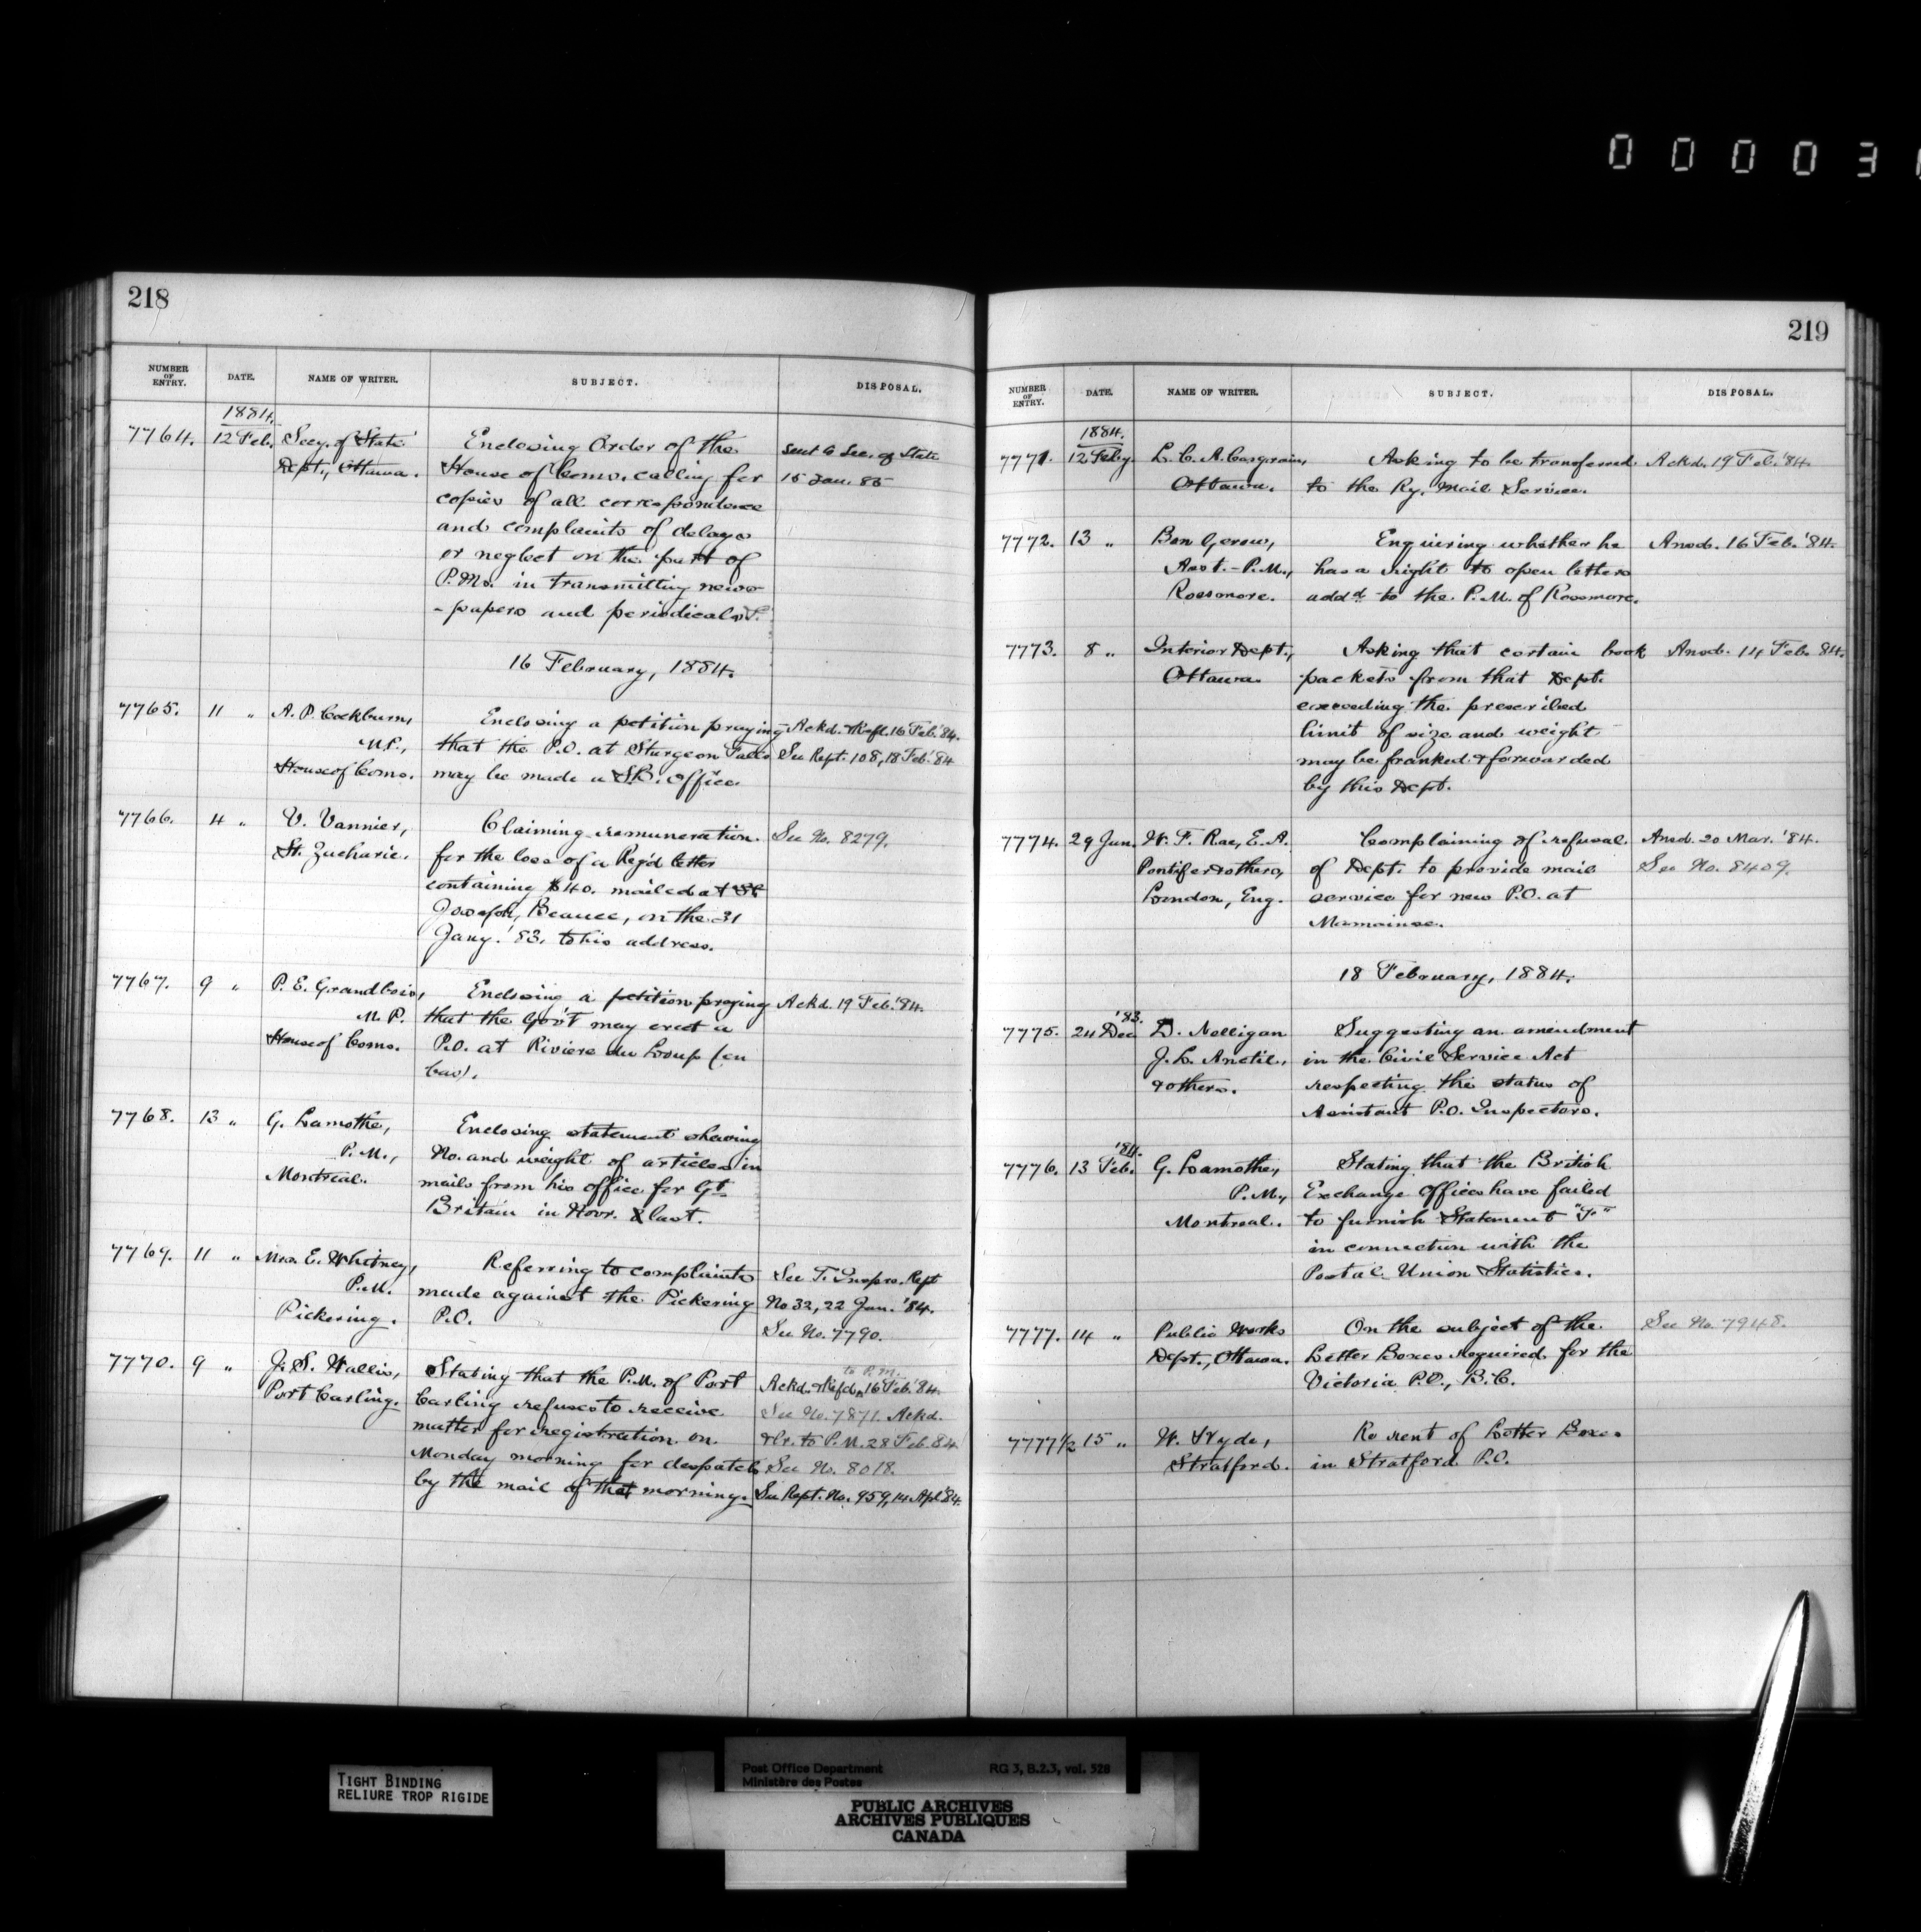 0 0 0 0 3
218
NUMBER OF ENTRY. DATE. NAME OF WRITER. SUBJECT. DISPOSAL.
1884.
7764. 12 Feb. Secy. of State Enclosing Order of the Sent to Sec. of State
Dept., Ottawa. House of Coms. calling for 15 Jan. 85
copies of all correspondence
and complaints of delays
or neglect on the part of
P.Ms. in transmitting news-
-papers and periodicals.
16 February, 1884.
7765. 11 " A. P. Cockburn, Enclosing a petition praying Ackd. & Refd. 16 Feb. '84.
M.P., that the P.O. at Sturgeon Falls See Rept. 108, 18 Feb. '84
House of Coms. may be made a S.B. Office.
7766. 4 " V. Vannier, Claiming remuneration See No. 8279.
St. Zacharie. for the loss of a Reg'd letter
containing $40. mailed at St
Joseph, Beauce, on the 31
Jany. '83, to his address.
7767. 9 " P. E. Grandbois, Enclosing a petition praying Ackd. 19 Feb. '84.
M. P. that the Gov't may erect a
House of Coms. P.O. at Riviere du Loup (en
bas).
7768. 13 " G. Lamothe, Enclosing statement shewing
P.M., No. and weight of articles in
Montreal. mails from his office for Gt.
Britain in Novr. last.
7769. 11 " Mrs. E. Whitney, Referring to complaints See T. Insprs. Rept
P.M. made against the Pickering No 32, 22 Jan. '84.
Pickering. P.O. See No. 7790.
7770. 9 " J. S. Wallis, Stating that the P.M. of Port to P.M.
Port Carling. Carling refuses to receive Ackd. & Refd. 16 Feb. '84.
matter for registration on See No. 7871. Ackd.
Monday morning for despatch & Lr. to P.M. 28 Feb. 84
by the mail of that morning. See No. 8018.
See Rept. No. 959, 14 Apl. '84.
219
NUMBER OF ENTRY. DATE. NAME OF WRITER. SUBJECT. DISPOSAL.
1884.
7771. 12 Feby. L. C. A. Casgrain, Asking to be transferred Ackd. 19 Feb. '84.
Ottawa. to the Ry. Mail Service.
7772. 13 " Ben Gerow, Enquiring whether he Ansd. 16 Feb. '84.
Asst.-P.M., has a right to open letters
Rossmore. addd to the P.M. of Rossmore.
7773. 8 " Interior Dept., Asking that certain book Ansd. 14 Feb. 84.
Ottawa. packets from that Dept.
exceeding the prescribed
limit of size and weight
may be franked & forwarded
by this Dept.
7774. 29 Jan. W. F. Rae, E. A. Complaining of refusal Ansd. 20 Mar. '84.
Pontifex & others, of Dept. to provide mail See No. 8409.
London, Eng. service for new P.O. at
Mamainse.
18 February, 1884.
'83.
7775. 24 Dec D. Nelligan Suggesting an amendment
J. L. Anctil, in the Civil Service Act
& others. respecting the status of
Assistant P.O. Inspectors.
'84.
7776. 13 Feb. G. Lamothe, Stating that the British
P.M., Exchange Offices have failed
Montreal. to furnish Statement "F"
in connection with the
Postal Union Statistics.
7777. 14 " Public Works On the subject of the See No. 7948.
Dept., Ottawa. Letter Boxes required for the
Victoria P.O., B.C.
7777½ 15 " W. Hyde, Re rent of Letter Boxes
Stratford. in Stratford P.O.
TIGHT BINDING
RELIURE TROP RIGIDE
Post Office Department RG 3, B.2.3, vol. 528
Ministère des Postes
PUBLIC ARCHIVES
ARCHIVES PUBLIQUES
CANADA